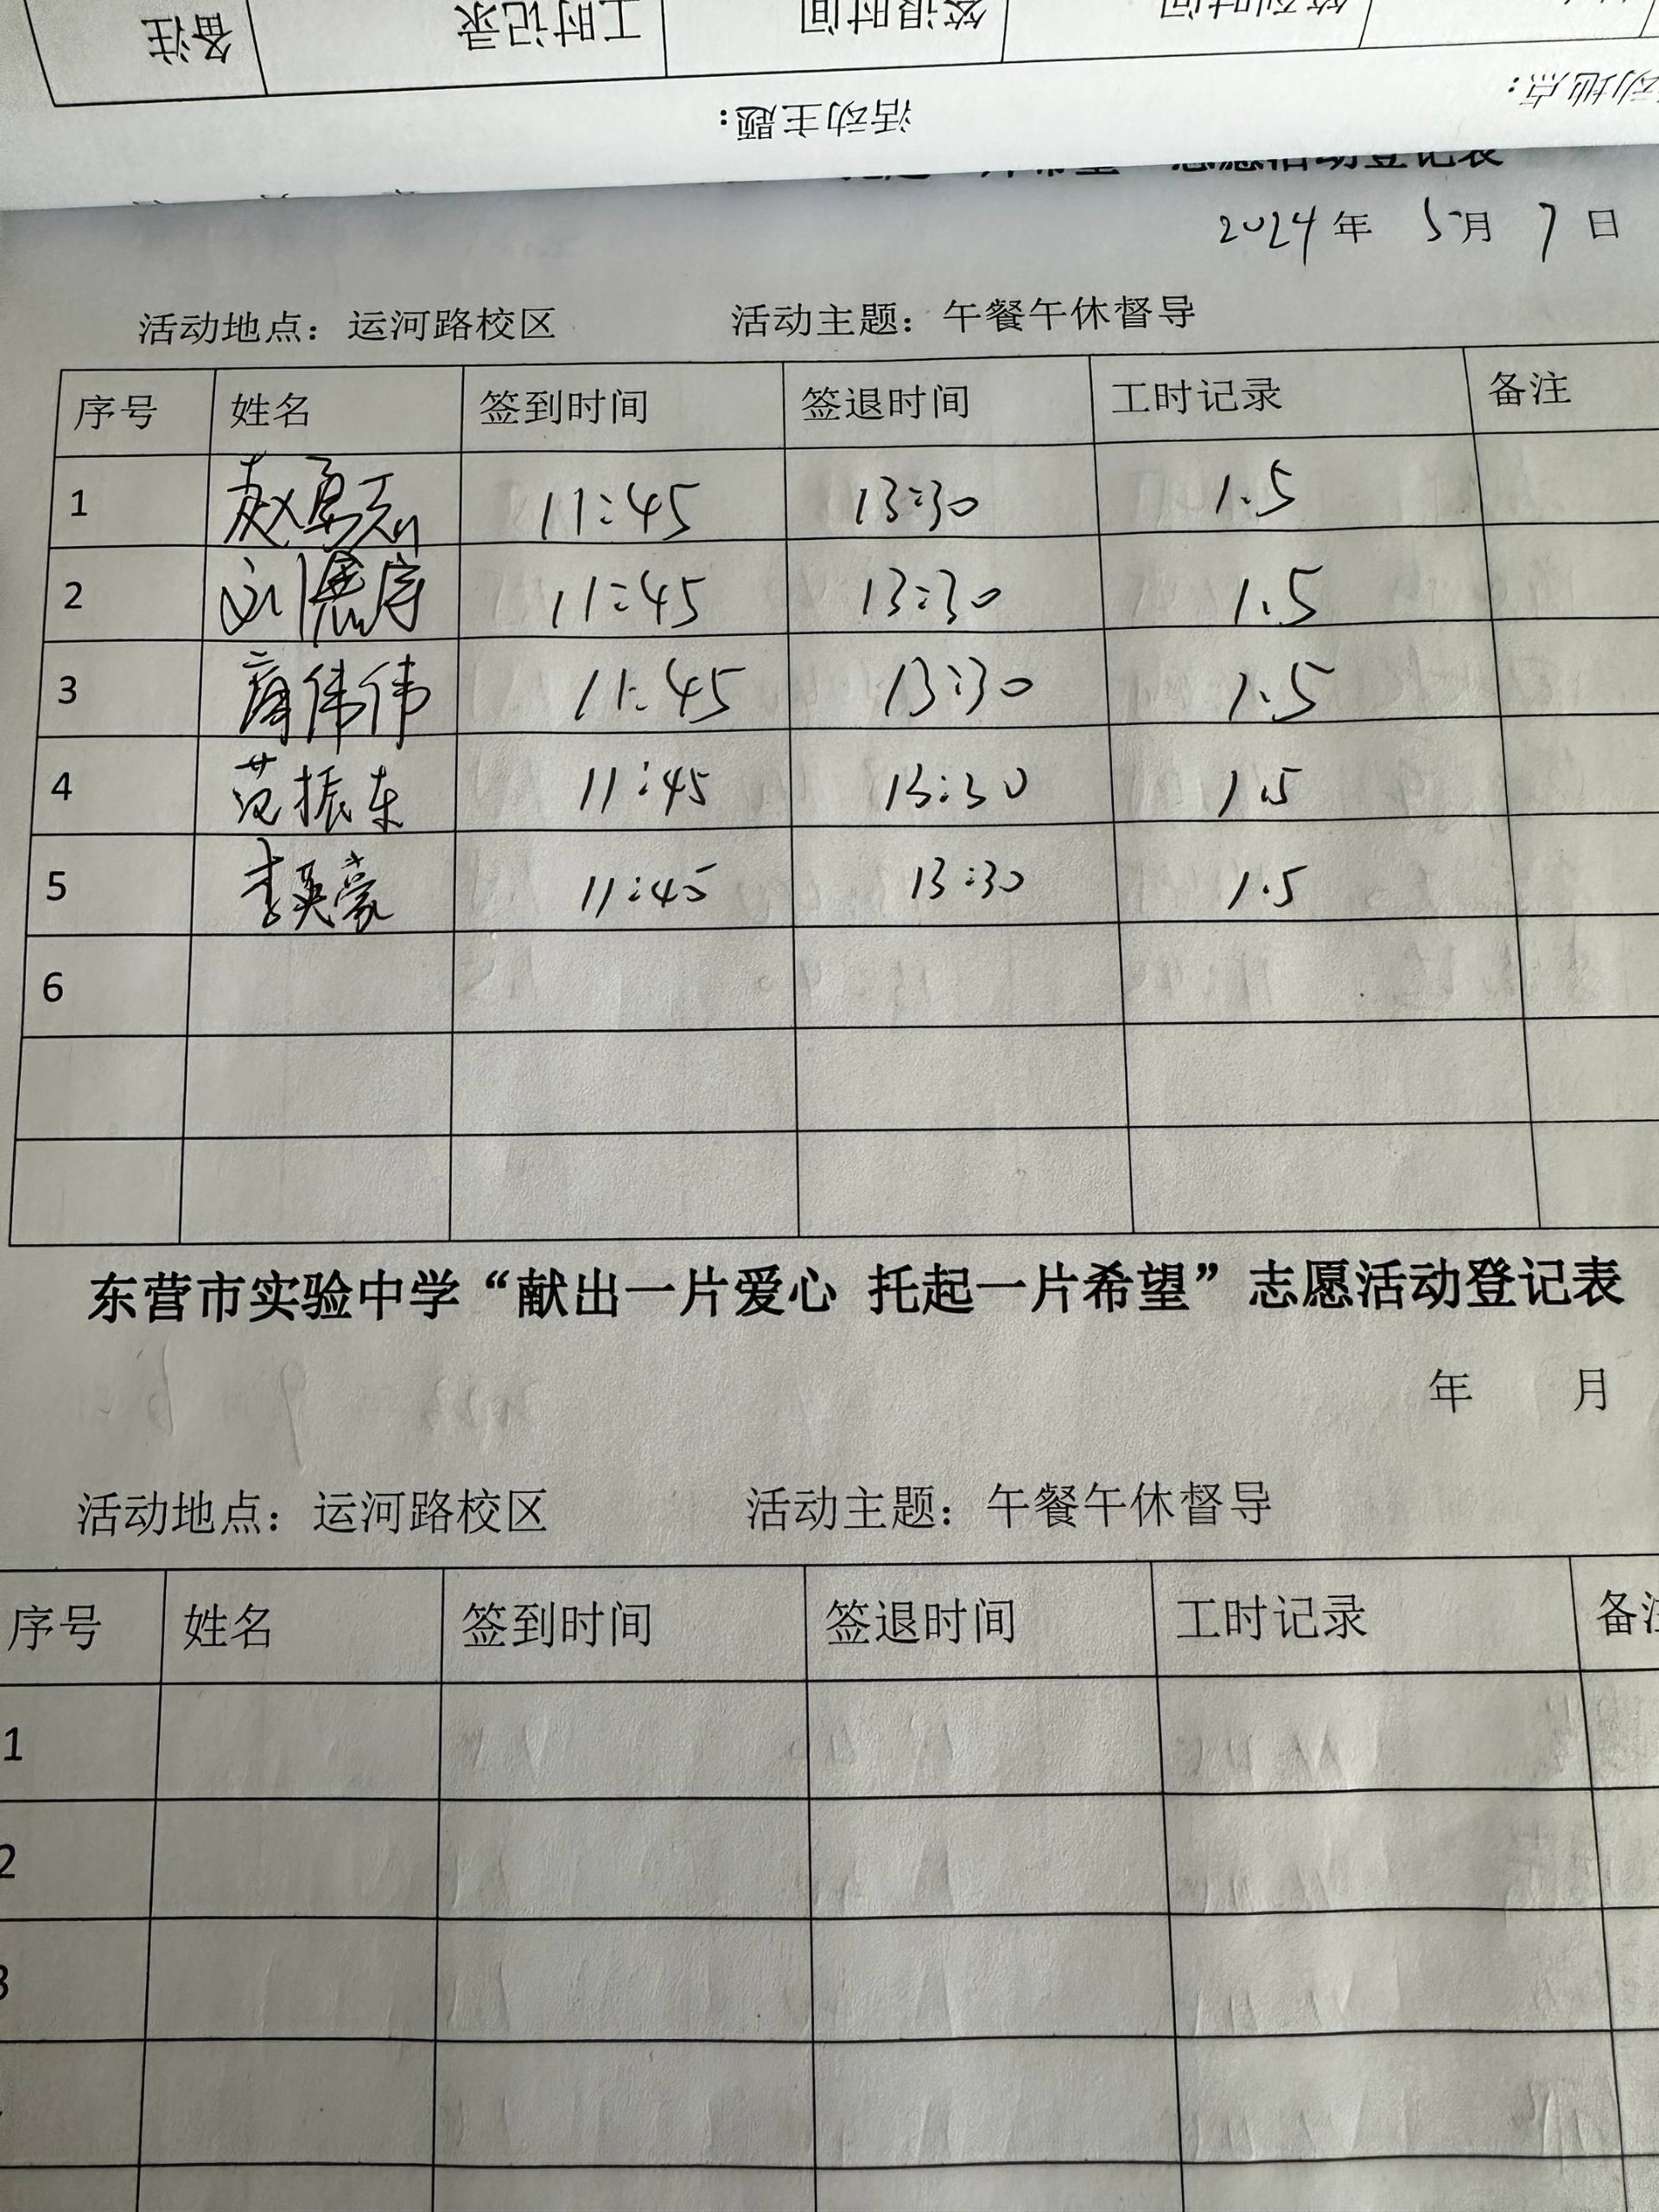 备注 工时记录 签退时间 签到时间
活动主题： 活动地点：
志愿活动登记表
2024年 5月 7日
活动地点：运河路校区 活动主题：午餐午休督导
序号 姓名 签到时间 签退时间 工时记录 备注
1 11:45 13:30 1.5
2 11:45 13:30 1.5
3 伟伟 11:45 13:30 1.5
4 范振东 11:45 13:30 1.5
5 李英豪 11:45 13:30 1.5
6
东营市实验中学“献出一片爱心 托起一片希望”志愿活动登记表
年 月
活动地点：运河路校区 活动主题：午餐午休督导
序号 姓名 签到时间 签退时间 工时记录 备注
1
2
3